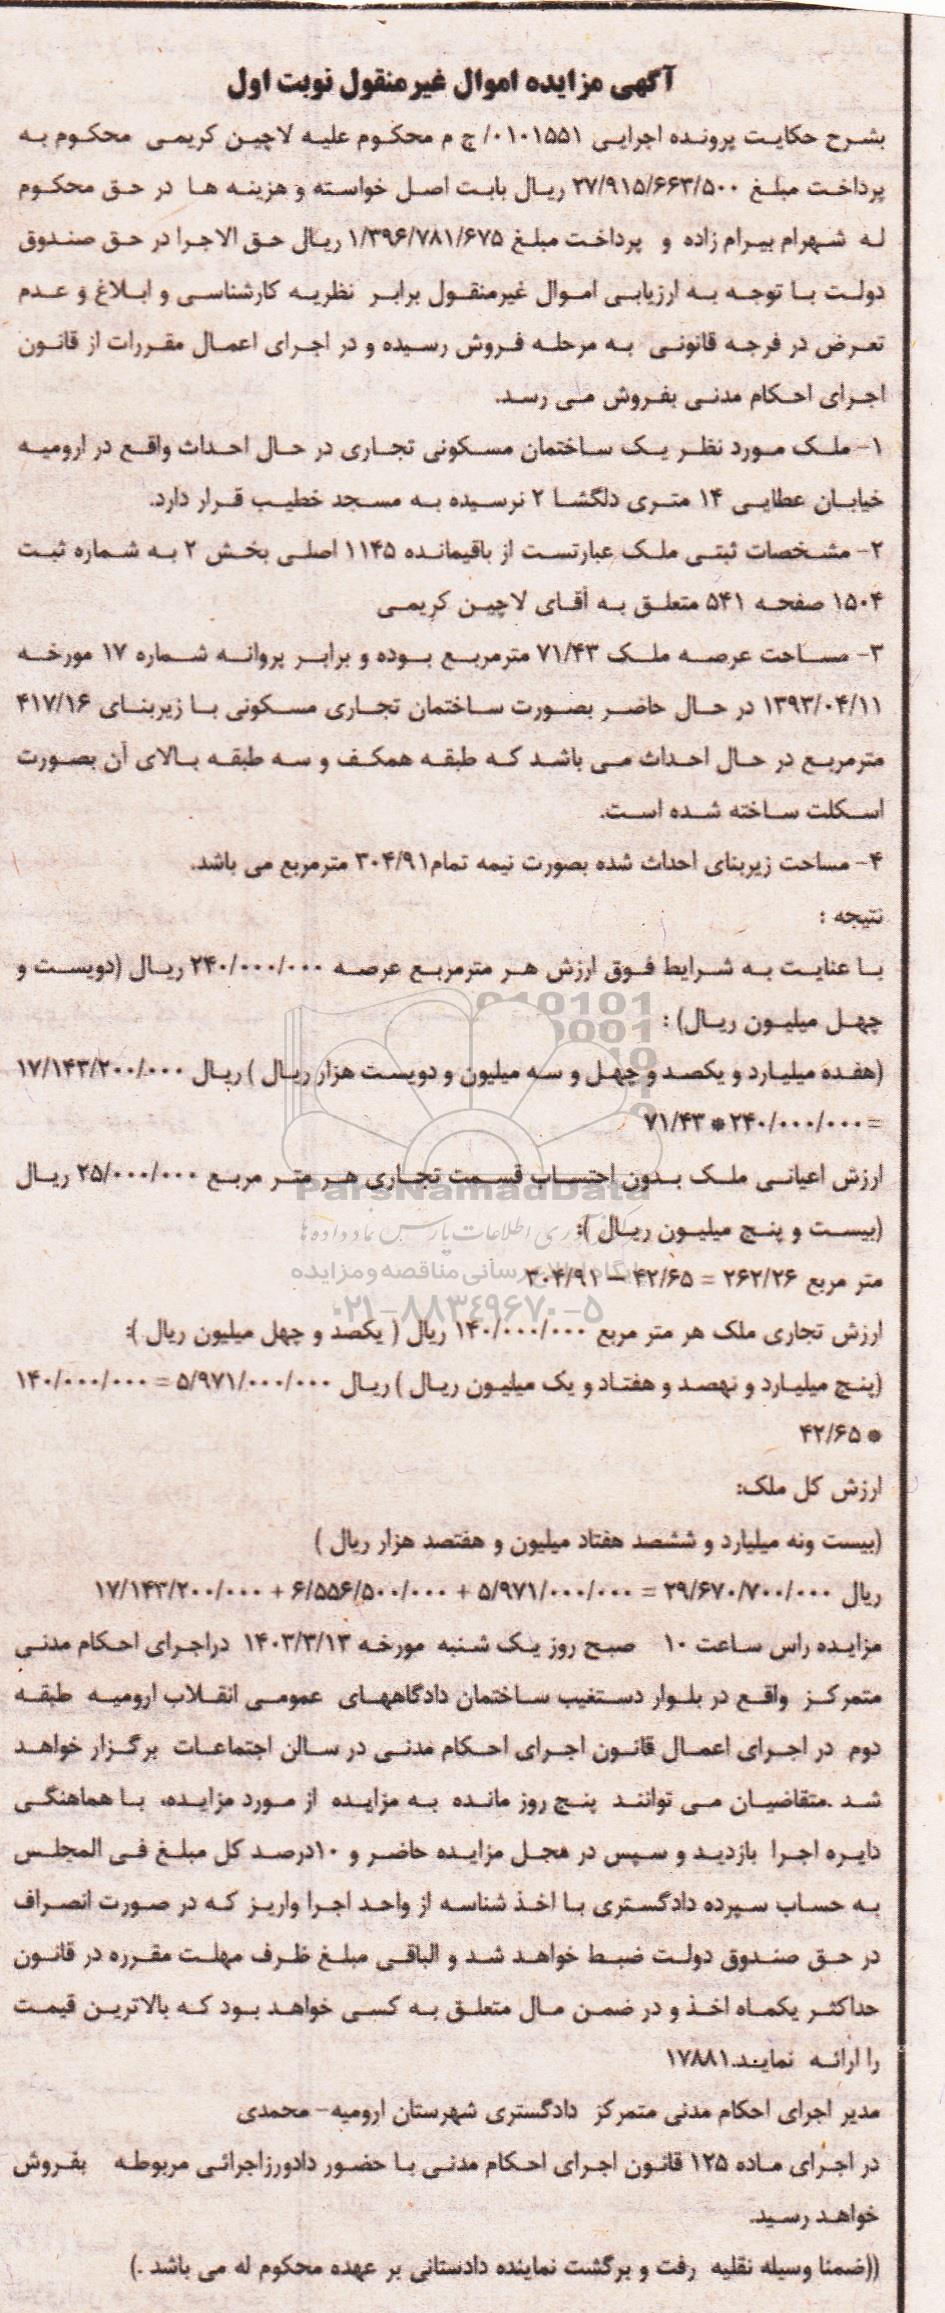 آگهی مزایده اموال غیرمنقول نوبت اول
بشرح حکایت پرونده اجرایی ۰۱۰۱۵۵۱/ ج م محکوم علیه لاچین کریمی محکوم به
پرداخت مبلغ ۲۷/۹۱۵/۶۶۳/۵۰۰ ریال بابت اصل خواسته و هزینه ها در حق محکوم
له شهرام بیرام زاده و پرداخت مبلغ ۱/۳۹۶/۷۸۱/۶۷۵ ریال حق الاجرا در حق صندوق
دولت با توجه به ارزیابی اموال غیرمنقول برابر نظریه کارشناسی و ابلاغ و عدم
تعرض در فرجه قانونی به مرحله فروش رسیده و در اجرای اعمال مقررات از قانون
اجرای احکام مدنی بفروش می رسد.
۱- ملک مورد نظر یک ساختمان مسکونی تجاری در حال احداث واقع در ارومیه
خیابان عطایی ۱۴ متری دلگشا ۲ نرسیده به مسجد خطیب قرار دارد.
۲- مشخصات ثبتی ملک عبارتست از باقیمانده ۱۱۴۵ اصلی بخش ۲ به شماره ثبت
۱۵۰۴ صفحه ۵۴۱ متعلق به آقای لاچین کریمی
۳- مساحت عرصه ملک ۷۱/۴۳ مترمربع بوده و برابر پروانه شماره ۱۷ مورخه
۱۳۹۳/۰۴/۱۱ در حال حاضر بصورت ساختمان تجاری مسکونی با زیربنای ۴۱۷/۱۶
مترمربع در حال احداث می باشد که طبقه همکف و سه طبقه بالای آن بصورت
اسکلت ساخته شده است.
۴- مساحت زیربنای احداث شده بصورت نیمه تمام۳۰۴/۹۱ مترمربع می باشد.
نتیجه :
با عنایت به شرایط فوق ارزش هر مترمربع عرصه ۲۴۰/۰۰۰/۰۰۰ ریال (دویست و
چهل میلیون ریال) :
(هفده میلیارد و یکصد و چهل و سه میلیون و دویست هزار ریال ) ریال ۱۷/۱۴۳/۲۰۰/۰۰۰
= ۲۴۰/۰۰۰/۰۰۰ * ۷۱/۴۳
ارزش اعیانی ملک بدون احتساب قسمت تجاری هر متر مربع ۲۵/۰۰۰/۰۰۰ ریال
(بیست و پنج میلیون ریال ):
متر مربع ۲۶۲/۲۶ = ۴۲/۶۵ – ۳۰۴/۹۱
ارزش تجاری ملک هر متر مربع ۱۴۰/۰۰۰/۰۰۰ ریال ( یکصد و چهل میلیون ریال ):
(پنج میلیارد و نهصد و هفتاد و یک میلیون ریال ) ریال ۵/۹۷۱/۰۰۰/۰۰۰ = ۱۴۰/۰۰۰/۰۰۰
* ۴۲/۶۵
ارزش کل ملک:
(بیست ونه میلیارد و ششصد هفتاد میلیون و هفتصد هزار ریال )
ریال ۲۹/۶۷۰/۷۰۰/۰۰۰ = ۵/۹۷۱/۰۰۰/۰۰۰ + ۶/۵۵۶/۵۰۰/۰۰۰ + ۱۷/۱۴۳/۲۰۰/۰۰۰
مزایده راس ساعت ۱۰ صبح روز یک شنبه مورخه ۱۴۰۳/۳/۱۳ دراجرای احکام مدنی
متمرکز واقع در بلوار دستغیب ساختمان دادگاههای عمومی انقلاب ارومیه طبقه
دوم در اجرای اعمال قانون اجرای احکام مدنی در سالن اجتماعات برگزار خواهد
شد .متقاضیان می توانند پنج روز مانده به مزایده از مورد مزایده، با هماهنگی
دایره اجرا بازدید و سپس در محل مزایده حاضر و ۱۰درصد کل مبلغ فی المجلس
به حساب سپرده دادگستری با اخذ شناسه از واحد اجرا واریز که در صورت انصراف
در حق صندوق دولت ضبط خواهد شد و الباقی مبلغ ظرف مهلت مقرره در قانون
حداکثر یکماه اخذ و در ضمن مال متعلق به کسی خواهد بود که بالاترین قیمت
را ارائه نمایند.۱۷۸۸۱
مدیر اجرای احکام مدنی متمرکز دادگستری شهرستان ارومیه- محمدی
در اجرای ماده ۱۲۵ قانون اجرای احکام مدنی با حضور دادورزاجرائی مربوطه بفروش
خواهد رسید.
((ضمنا وسیله نقلیه رفت و برگشت نماینده دادستانی بر عهده محکوم له می باشد .)
ParsNamadData
پایگاه اطلاع رسانی مناقصه و مزایده
۰۲۱-۸۸۳۴۹۶۷۰-۵